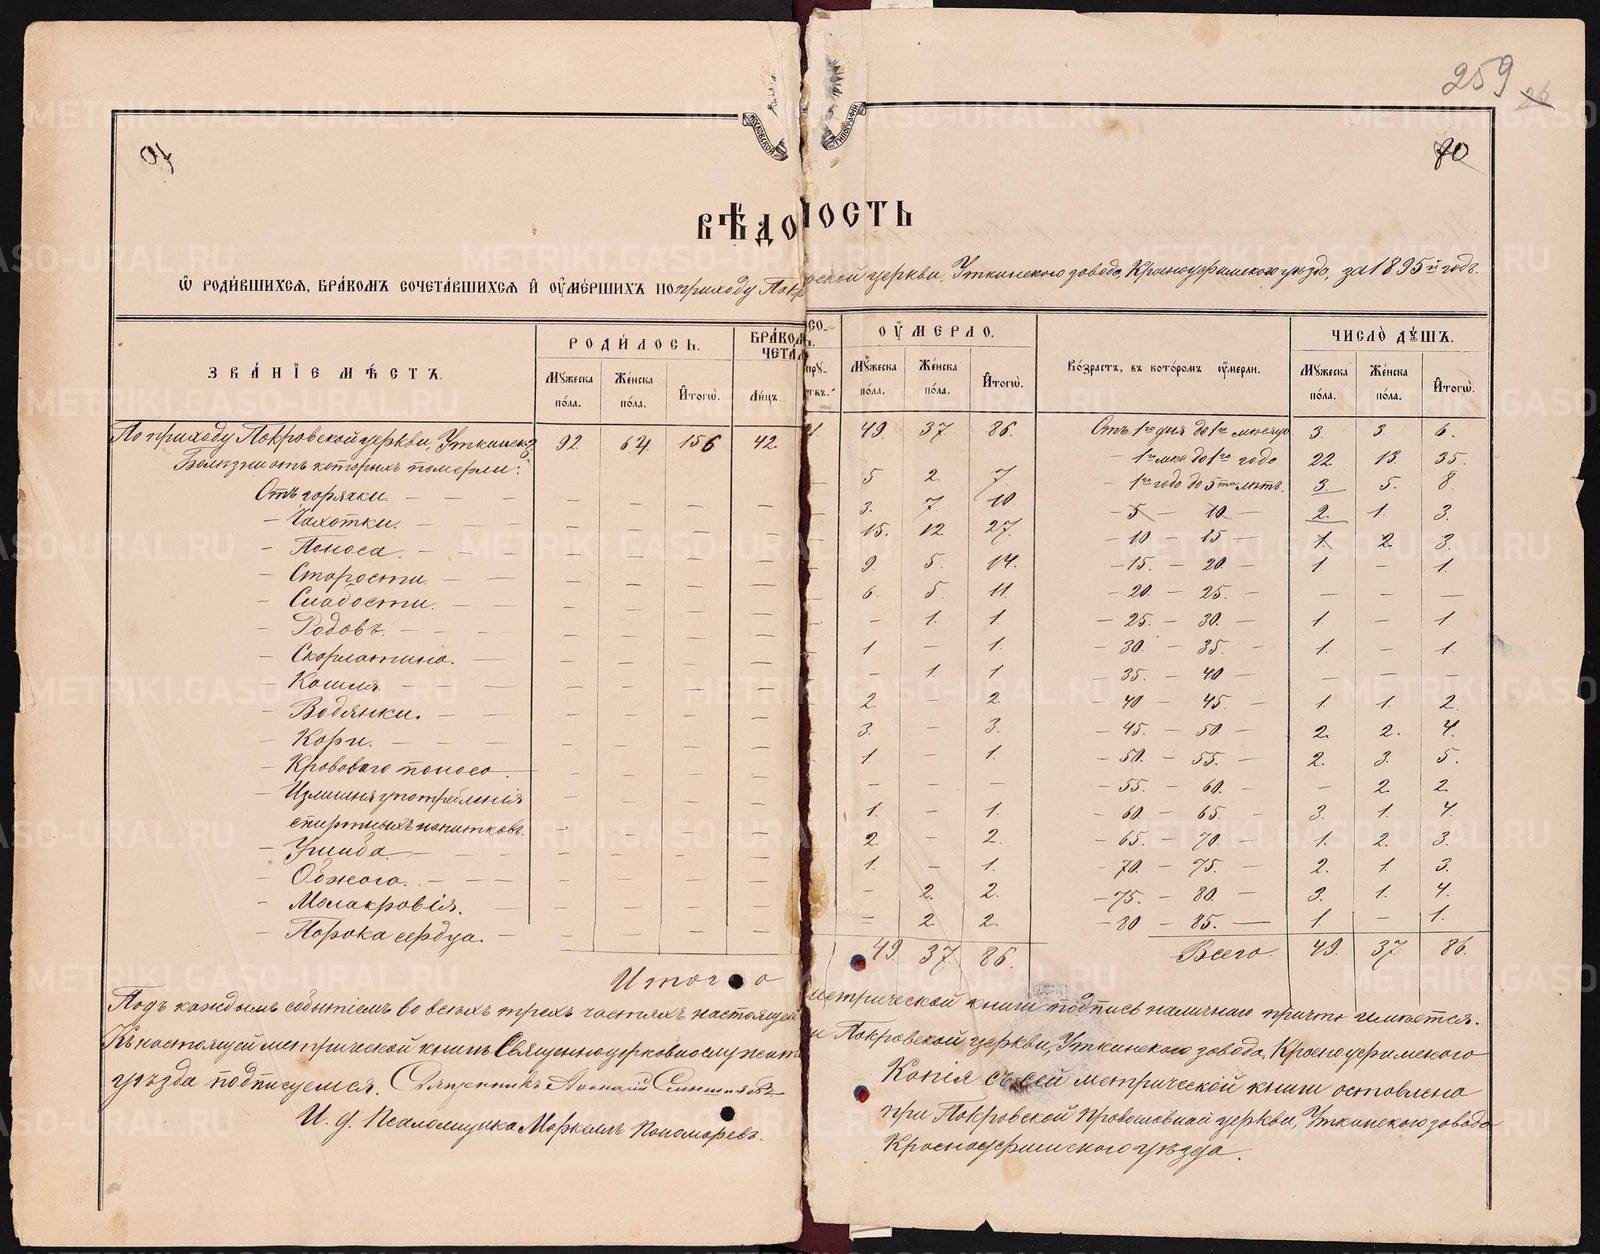 259 26
70
ВѢДОМОСТЬ
Ѡ РОДИ́ВШИХСѦ, БРА́КОМЪ СОЧЕТА́ВШИХСѦ И҆ ОУ҆МЕ́РШИХЪ ПО приходу Покровской церкви, Уткинского завода, Красноуфимского уѣзда, за 1895й годъ.
ЗВА́НІЕ МѢ́СТЪ. РОДИ́ЛОСЬ. БРА́КОМЪ СОЧЕТА́Л ОУ҆́МЕРЛО. Во́зрастъ, въ кото́ромъ оу҆́мерли. ЧИСЛО̀ ДꙊ́ШЪ.
Мꙋ́жеска по́ла. Же́нска по́ла. И҆тогѡ̀. Ли́цъ. Мꙋ́жеска по́ла. Же́нска по́ла. И҆тогѡ̀. Мꙋ́жеска по́ла. Же́нска по́ла. И҆тогѡ̀.
По приходу Покровской церкви, Уткинск. з. 92. 64. 156 42. 21. 49. 37. 86. Отъ 1го дня до 1го мѣсяца 3. 3. 6.
Болѣзни отъ которыхъ померли: – 1го мѣс до 1го года 22. 13. 35.
Отъ горячки. – – – – – – 5 2. 7. – 1го года до 5ти лѣтъ. 3. 5. 8.
– Чахотки. – – – – – 3. 7 10. – 5 – 10 – 2. 1. 3.
– Поноса. – – – – – 15. 12 27. – 10 – 15 – 1. 2. 3.
– Старости – – – – – 9. 5. 14. – 15. – 20. – 1. – 1.
– Слабости. – – – – – 6. 5. 11. – 20. – 25. – – – –
– Родовъ. – – – – – – 1. 1. – 25. – 30. – 1 – 1
– Скарлатина. – – – – – 1 – 1. – 30. – 35. – 1. – 1.
– Кашля. – – – – – – 1 1. – 35. – 40 – – – –
– Водянки. – – – – – 2. – 2. – 40 – 45. – 1. 1. 2.
– Кори. – – – – – 3. – 3. – 45. – 50. – 2. 2. 4.
– Кроваваго поноса. – – – – 1 – 1. – 50. – 55. – 2. 3. 5.
– Излишня употребленія – – – – – – – – 55. – 60. – – 2. 2.
спиртныхъ напитковъ. – – – – 1. – 1. – 60. – 65. – 3. 1. 4.
– Ушиба. – – – – – 2. – 2. – 65. – 70. – 1. 2. 3.
– Обжога. – – – – – 1. – 1. – 70. – 75. – 2. 1. 3.
– Малакровія. – – – – – – 2. 2. – 75. – 80. – 3. 1. 4.
– Порока сердца. – – – – – – 2. 2. – 80 – 85. – 1. – 1.
Итого 49. 37. 86. Всего. 49. 37. 86.
Подъ каждымъ событіемъ во всѣхъ трехъ частяхъ настоящей метрической книги подпись наличнаго причта имѣется.
Къ настоящей метрической книгѣ Священноцерковнослужит Покровской церкви, Уткинского завода, Красноуфимского
уѣзда подписуемся. Священникъ
И. д. Псаломщика Маркеллъ Пономаревъ.
Копія съ сей метрической книги оставлена
при Покровской Православной церкви, Уткинского завода
Красноуфимского уѣзда.